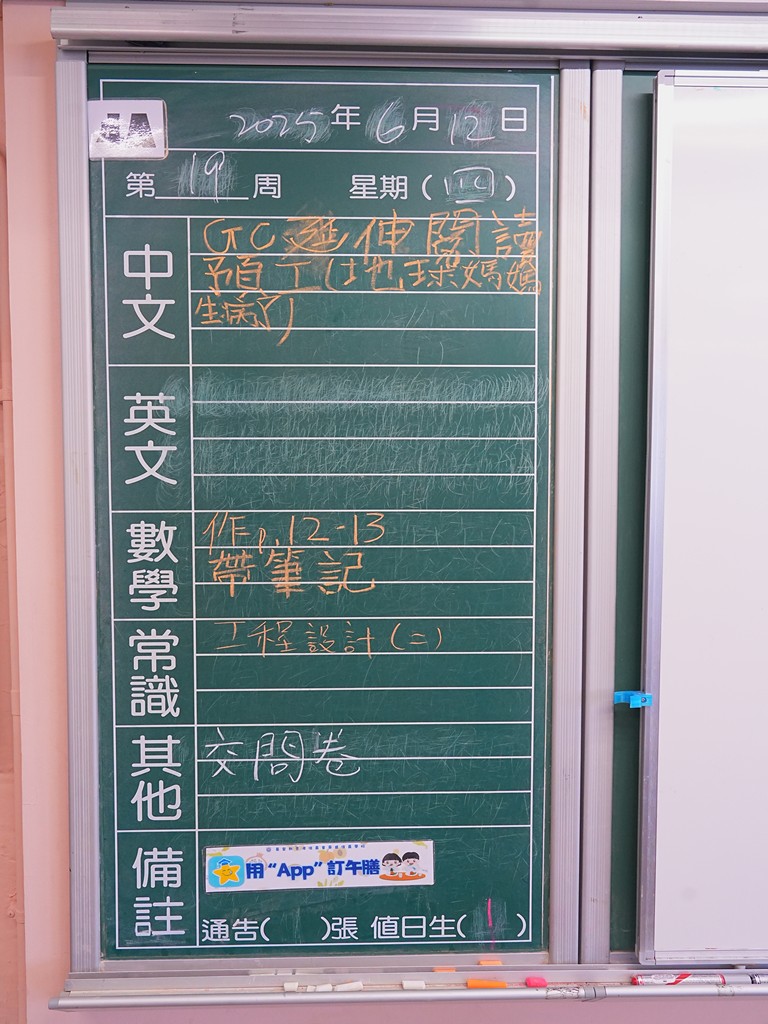 4A
2025年6月12日
第19周 星期(四)
中文
GC進伸閱讀
預工(地球媽媽
生病了)
英文
數學
作p.12-13
帶筆記
常識
工程設計(二)
其他
交問卷
備註
用“App”訂午膳
通告( )張 值日生(1)